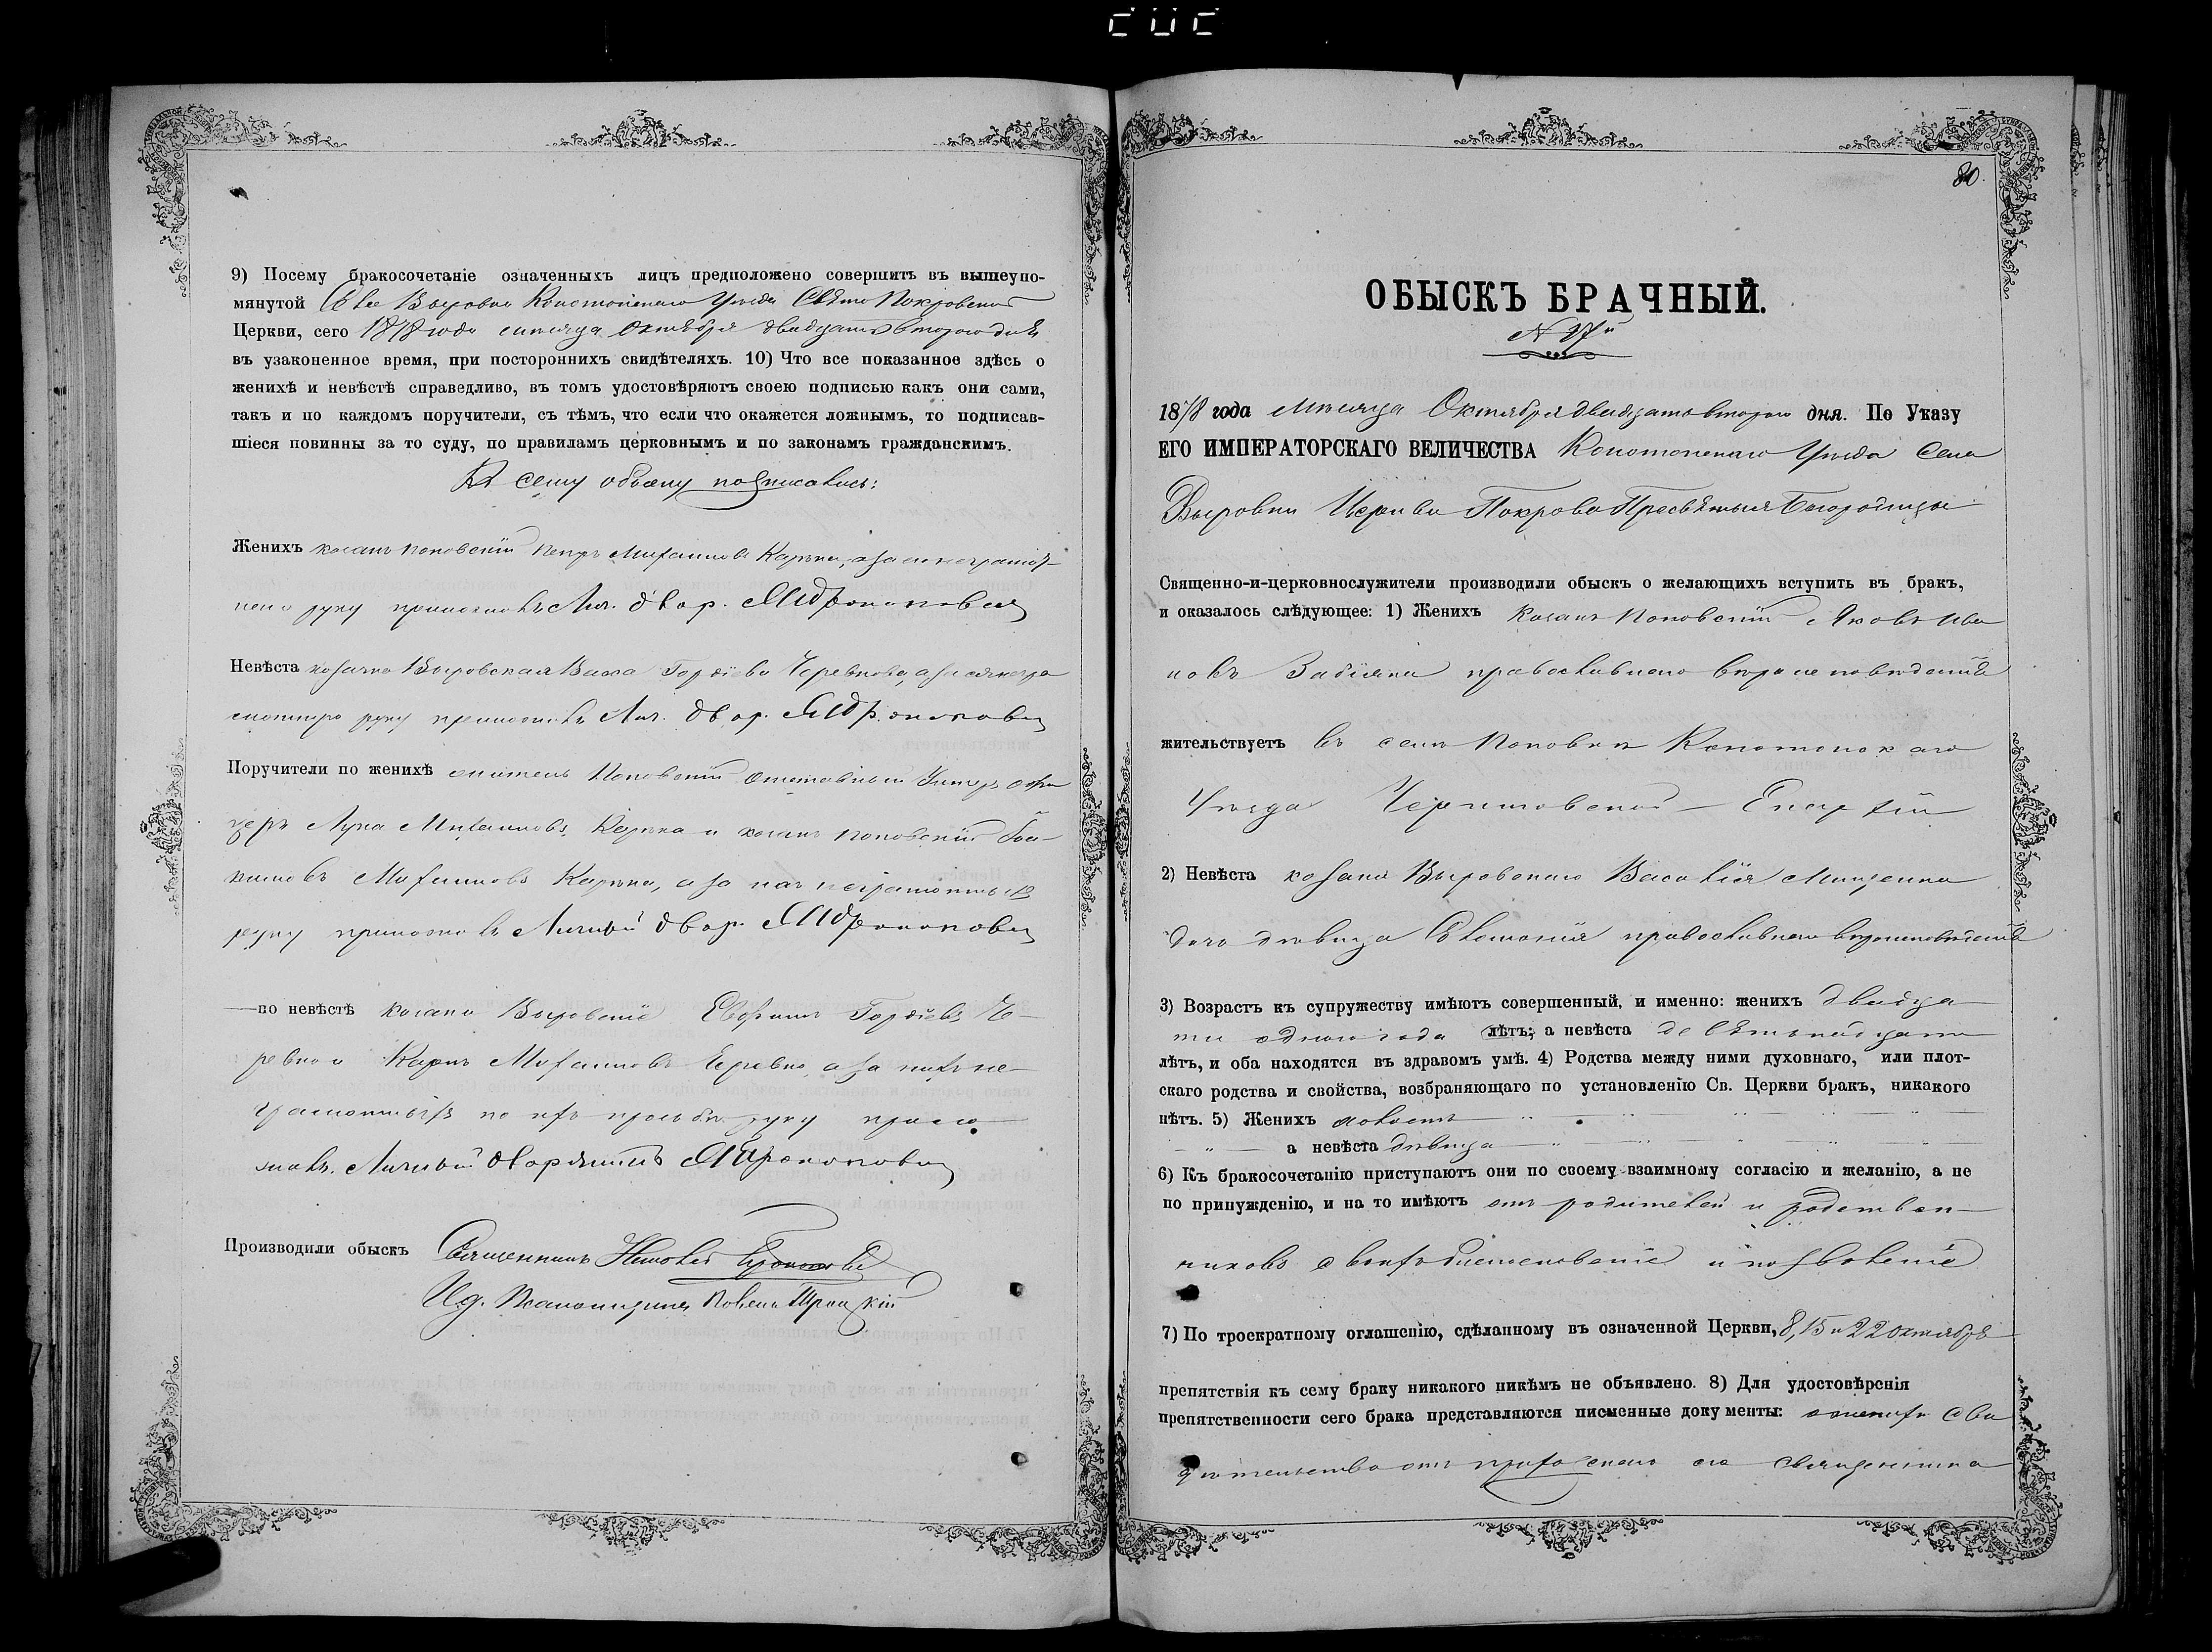 9) Посему бракосочетаніе означенныхъ лицъ предположено совершить въ вышеупо-
мянутой Селе Выровке Конотопскаго Уѣзда Свято Покровской
Церкви, сего 1878 года месяца Октября двадцать втораго дня
въ узаконенное время, при постороннихъ свидѣтеляхъ. 10) Что все показанное здѣсь о
женихѣ и невѣстѣ справедливо, въ томъ удостовѣряютъ своею подписью какъ они сами,
такъ и по каждомъ поручители, съ тѣмъ, что если что окажется ложнымъ, то подписав-
шіеся повинны за то суду, по правиламъ церковнымъ и по законамъ гражданскимъ.
Къ сему обыску подписались:
Женихъ козакъ Поповскій Петръ Михаиловъ Карпка, а за неграмот-
наго руку приложилъ Лич. двор.
Невѣста козачка Выровская Гордіева Черевкова, а за неегра
мотную руку приложилъ Лич. двор.
Поручители по женихѣ житель Поповскій отставный Унтеръ офи
церъ Лука Михаиловъ и козакъ Поповскій
Михаиловъ а за нихъ неграмотныхъ
руку приложилъ Личный двор.
по невѣстѣ козаки Выровскіе Гордіевъ Че-
ревко и Карпъ Михаиловъ Черевко, а за нихъ не-
грамотныхъ по ихъ просьбѣ руку прило
жилъ Личный дворянинъ
Производили обыскъ Священникъ
И.д. Псаломщика Троцкій
80.
ОБЫСКЪ БРАЧНЫЙ.
№ 27й
1878 года Мѣсяца Октября двадцать втораго дня. По Указу
ЕГО ИМПЕРАТОРСКАГО ВЕЛИЧЕСТВА Конотопскаго Уѣзда Села
Выровки Церкви Покрова Пресвятыя Богородицы
Священно-и-церковнослужители производили обыскъ о желающихъ вступить въ бракъ,
и оказалось слѣдующее: 1) Женихъ Козакъ Поповскій Яковъ Ива
новъ Забіяка православнаго вѣроисповѣданія
жительствуетъ въ селѣ Поповкѣ Конотопскаго
Уѣзда Черниговской Епархіи
2) Невѣста козака Выровскаго Василія Мищенка
дочь дѣвица православнаго вѣроисповѣданія
3) Возрастъ къ супружеству имѣютъ совершенный, и именно: женихъ двадца
ти одного года лѣтъ; а невѣста девятнадцати
лѣтъ, и оба находятся въ здравомъ умѣ. 4) Родства между ними духовнаго, или плот-
скаго родства и свойства, возбраняющаго по установленію Св. Церкви бракъ, никакого
нѣтъ. 5) Женихъ холостъ
а невѣста дѣвица
6) Къ бракосочетанію приступаютъ они по своему взаимному согласію и желанію, а не
по принужденію, и на то имѣютъ отъ родителей и родствен-
никовъ своихъ благословеніе и позволеніе
7) По троекратному оглашенію, сдѣланному въ означенной Церкви, 8, 15 и 22 октября
препятствія къ сему браку никакого никѣмъ не объявлено. 8) Для удостовѣренія
препятственности сего брака представляются писменные документы: о женихѣ сви
дѣтельство отъ приходскаго его священника